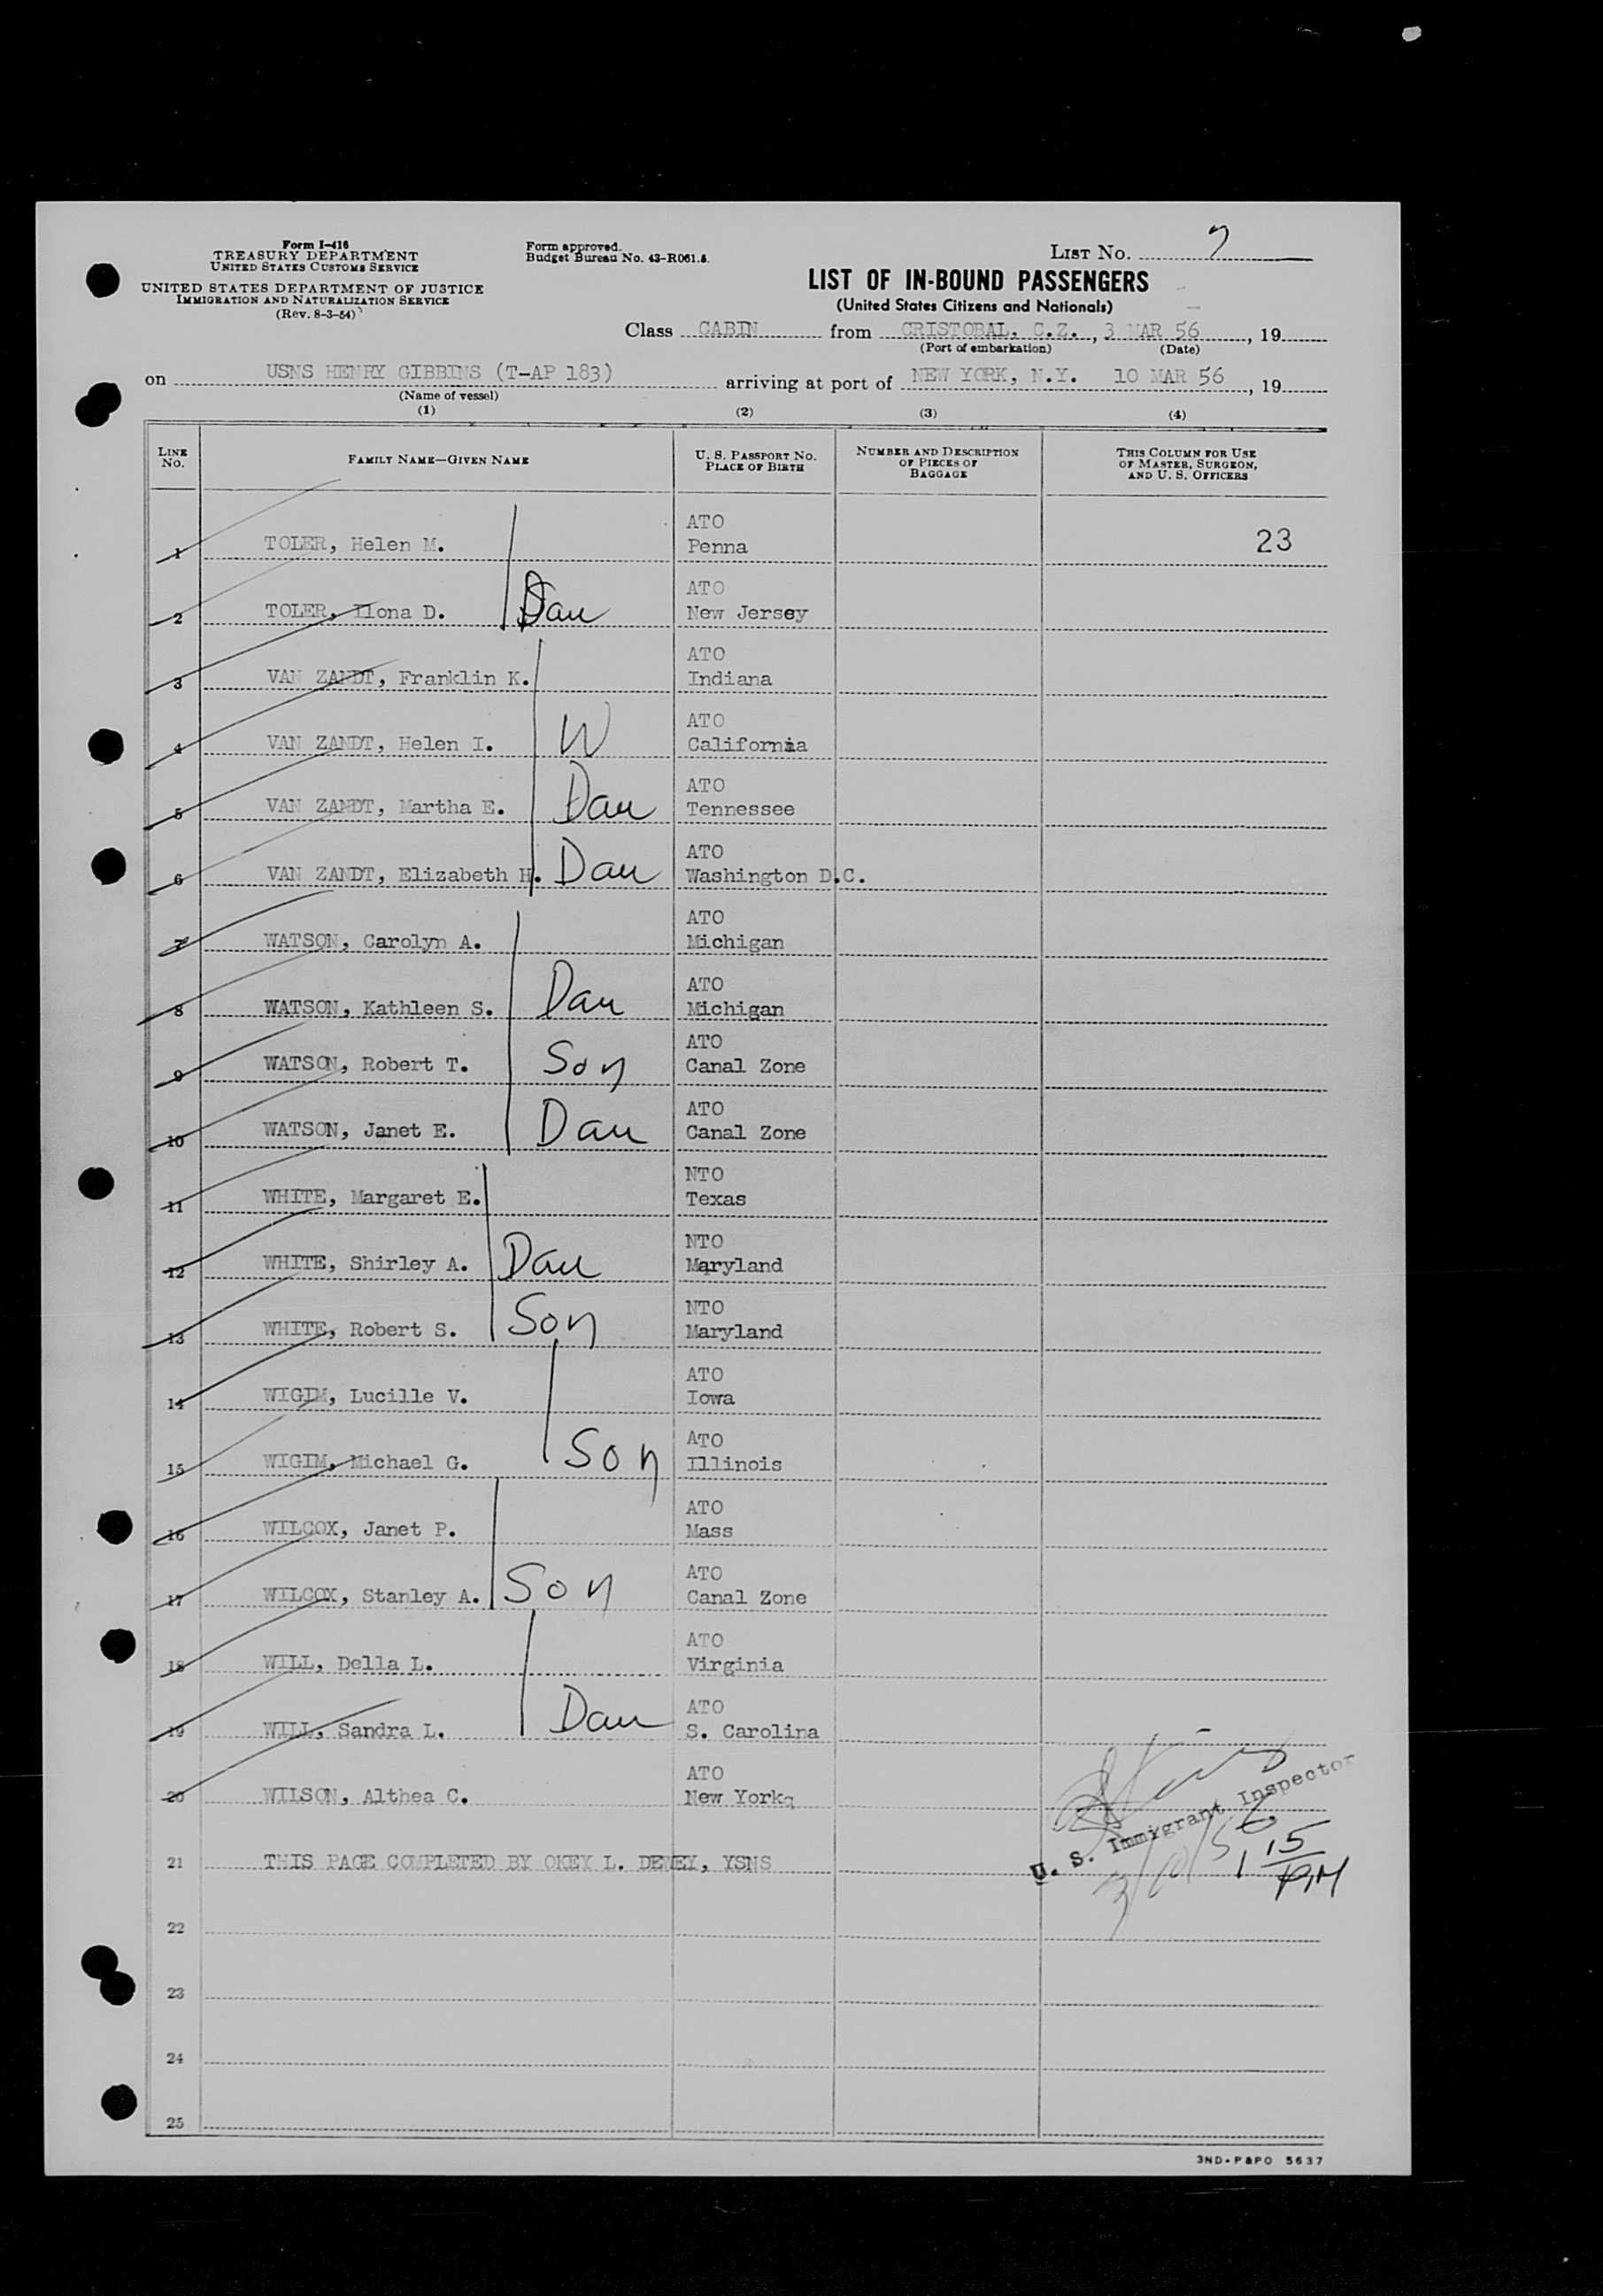 Form I-416
TREASURY DEPARTMENT
UNITED STATES CUSTOMS SERVICE
UNITED STATES DEPARTMENT OF JUSTICE
IMMIGRATION AND NATURALIZATION SERVICE
(Rev. 8-3-54)
Form approved.
Budget Bureau No. 43-R061.5.
LIST No. 7
LIST OF IN-BOUND PASSENGERS
(United States Citizens and Nationals)
Class CABIN from CRISTOBAL, C.Z., 3 MAR 56, 19
(Port of embarkation) (Date)
on USNS HENRY GIBBINS (T-AP 183) arriving at port of NEW YORK, N.Y. 10 MAR 56, 19
(Name of vessel)
(1) (2) (3) (4)
LINE No. FAMILY NAME—GIVEN NAME U. S. PASSPORT NO. PLACE OF BIRTH NUMBER AND DESCRIPTION OF PIECES OF BAGGAGE THIS COLUMN FOR USE OF MASTER, SURGEON, AND U. S. OFFICERS
ATO
1 TOLER, Helen M. Penna 23
ATO
2 TOLER, Ilona D. Dau New Jersey
ATO
3 VAN ZANDT, Franklin K. Indiana
ATO
4 VAN ZANDT, Helen I. W California
ATO
5 VAN ZANDT, Martha E. Dau Tennessee
ATO
6 VAN ZANDT, Elizabeth H. Dau Washington D.C.
ATO
7 WATSON, Carolyn A. Michigan
ATO
8 WATSON, Kathleen S. Dau Michigan
ATO
9 WATSON, Robert T. Son Canal Zone
ATO
10 WATSON, Janet E. Dau Canal Zone
NTO
11 WHITE, Margaret E. Texas
NTO
12 WHITE, Shirley A. Dau Maryland
NTO
13 WHITE, Robert S. Son Maryland
ATO
14 WIGIM, Lucille V. Iowa
ATO
15 WIGIM, Michael G. Son Illinois
ATO
16 WILCOX, Janet P. Mass
ATO
17 WILCOX, Stanley A. Son Canal Zone
ATO
18 WILL, Della L. Virginia
ATO
19 WILL, Sandra L. Dau S. Carolina
ATO
20 WILSON, Althea C. New Yorkq
U. S. Immigrant Inspector
3/10/56
1 15 PM
21 THIS PAGE COMPLETED BY OKEY L. DEWEY, YSNS
22
23
24
25
3ND-P&PO 5637